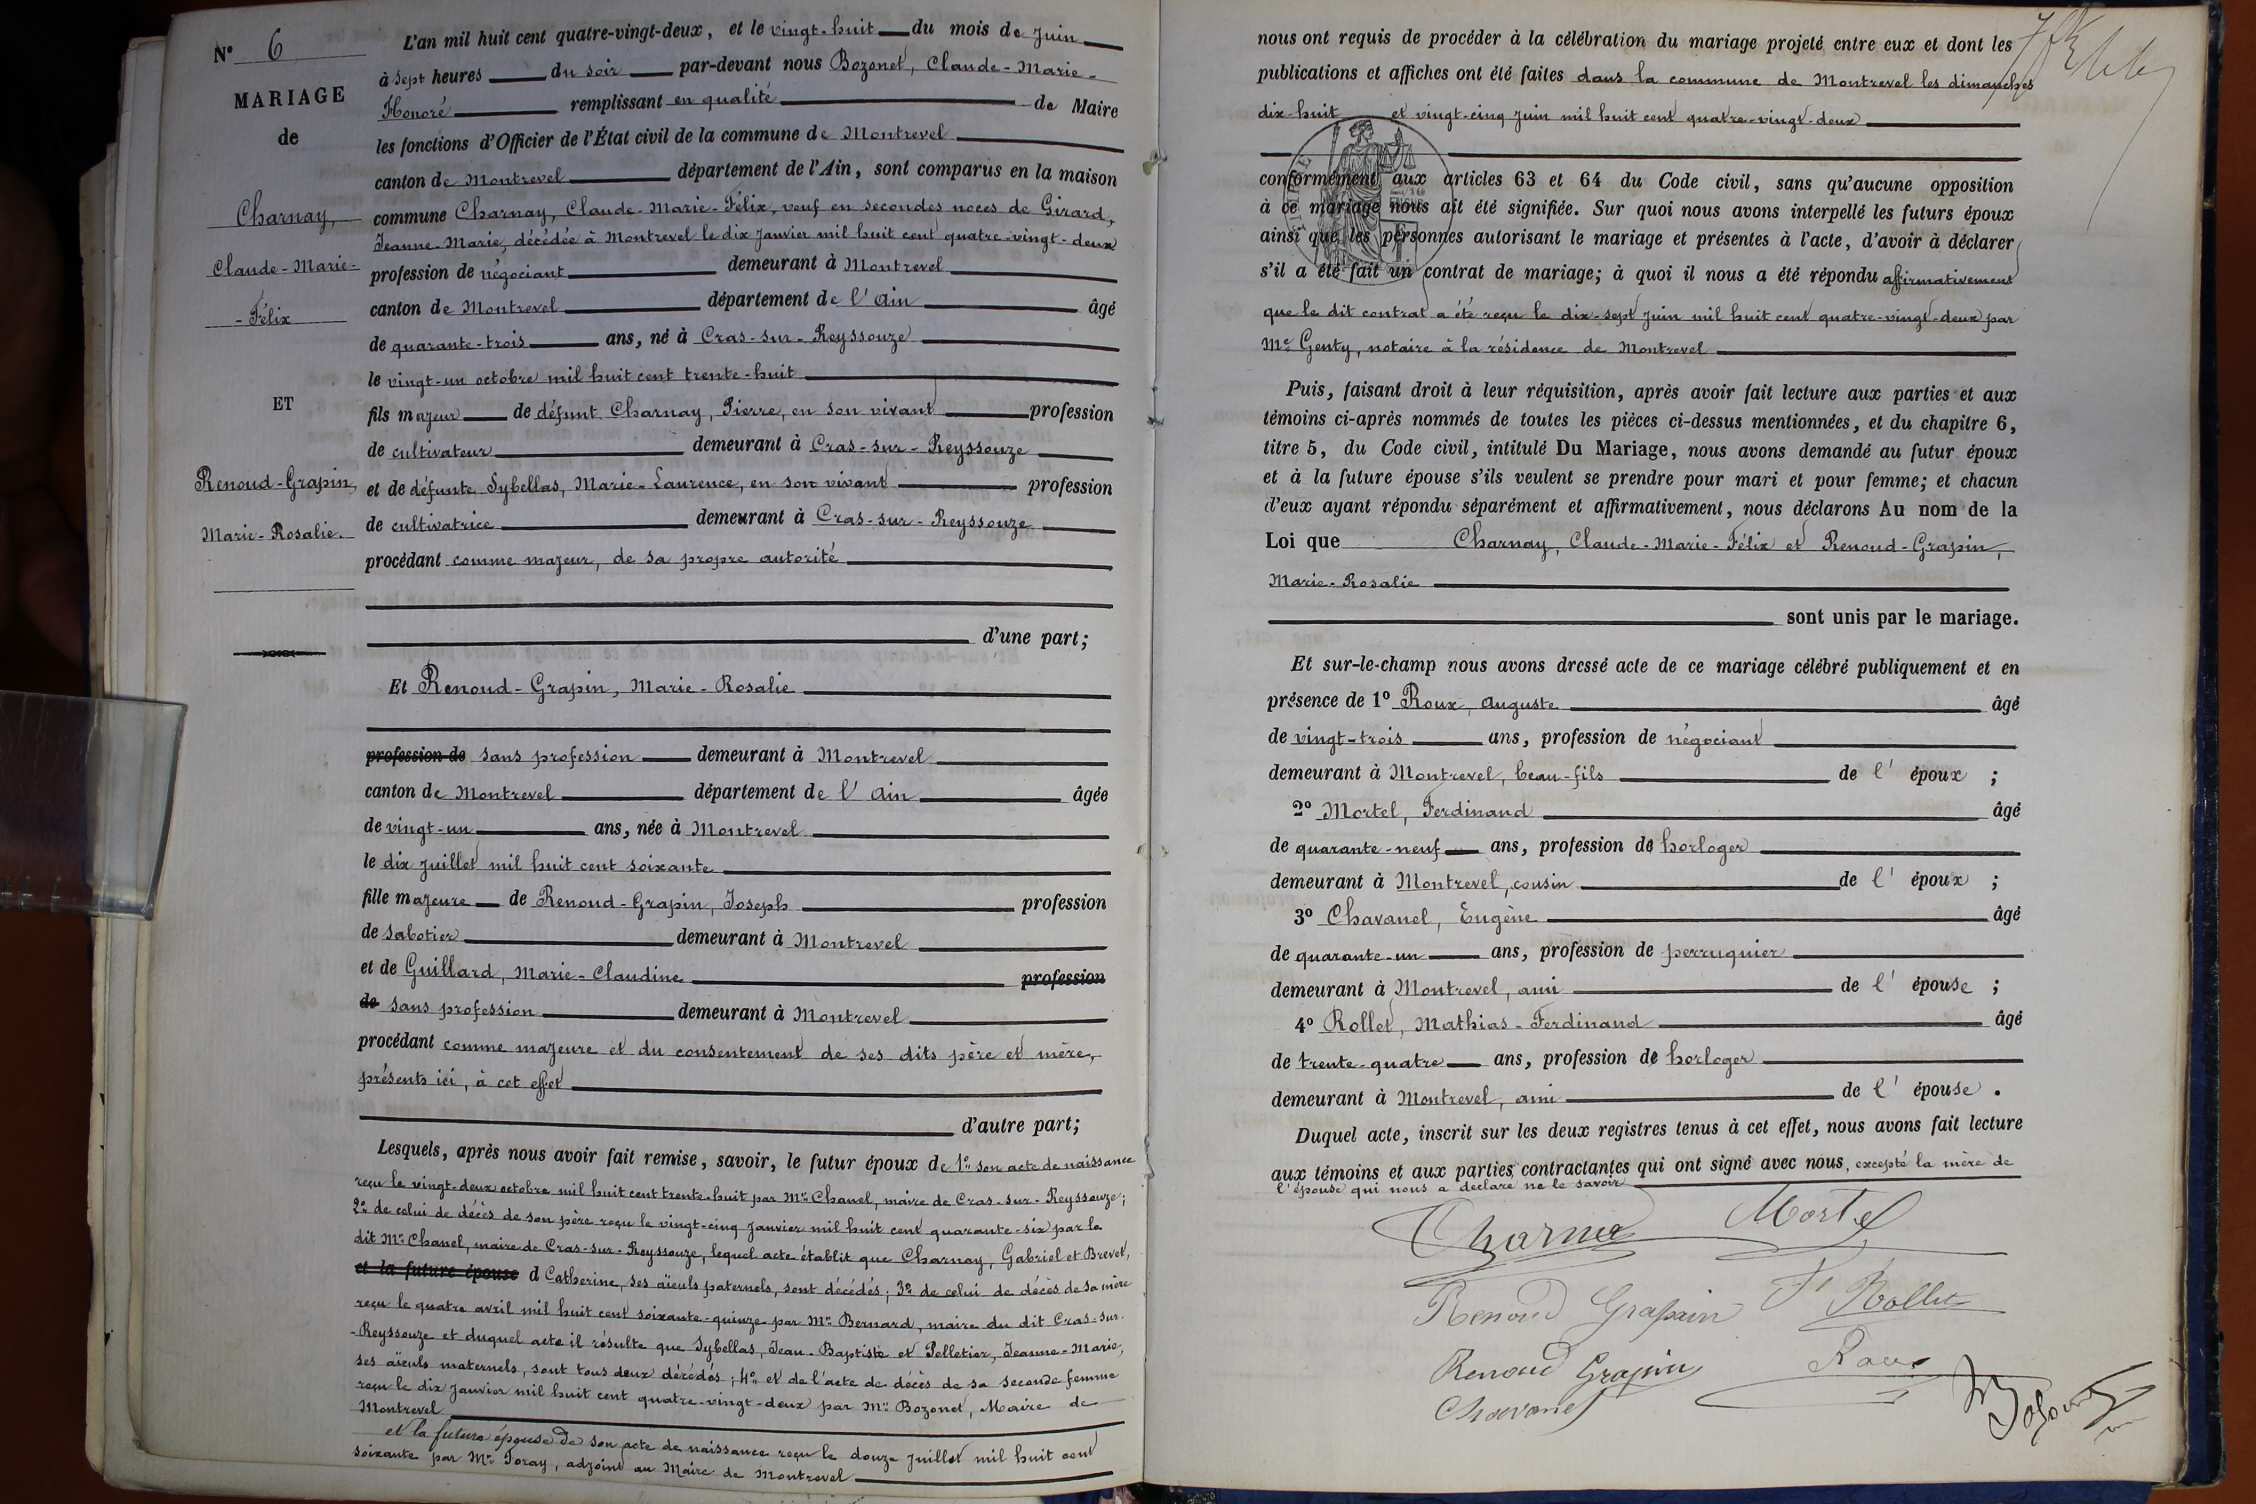 N° 6
MARIAGE
de
Charnay,
Claude-Marie-
-Félix
ET
Renoud-Grapin,
Marie-Rosalie.
L'an mil huit cent quatre-vingt-deux, et le vingt-huit du mois de Juin
à sept heures du soir par-devant nous Bozonet, Claude-Marie-
Honoré remplissant en qualité de Maire
les fonctions d'Officier de l'État civil de la commune de Montrevel
canton de Montrevel département de l'Ain, sont comparus en la maison
commune Charnay, Claude-Marie-Félix, veuf en secondes noces de Girard,
Jeanne-Marie, décédée à Montrevel le dix Janvier mil huit cent quatre-vingt-deux
profession de négociant demeurant à Montrevel
canton de Montrevel département de l'Ain âgé
de quarante-trois ans, né à Cras-sur-Reyssouze
le vingt-un octobre mil huit cent trente-huit
fils majeur de défunt Charnay, Pierre, en son vivant profession
de cultivateur demeurant à Cras-sur-Reyssouze
et de défunte Sybellas, Marie-Laurence, en son vivant profession
de cultivatrice demeurant à Cras-sur-Reyssouze
procédant comme majeur, de sa propre autorité
d'une part;
Et Renoud-Grapin, Marie-Rosalie
profession de sans profession demeurant à Montrevel
canton de Montrevel département de l'Ain âgée
de vingt-un ans, née à Montrevel
le dix Juillet mil huit cent soixante
fille majeure de Renoud-Grapin, Joseph profession
de sabotier demeurant à Montrevel
et de Guillard, Marie-Claudine profession
de sans profession demeurant à Montrevel
procédant comme majeure et du consentement de ses dits père et mère,
présents ici, à cet effet
d'autre part;
Lesquels, après nous avoir fait remise, savoir, le futur époux de 1° son acte de naissance
reçu le vingt-deux octobre mil huit cent trente-huit par Mr Chanel, maire de Cras-sur-Reyssouze;
2° de celui de décès de son père reçu le vingt-cinq Janvier mil huit cent quarante-six par le
dit Mr Chanel, maire de Cras-sur-Reyssouze, lequel acte établit que Charnay, Gabriel et Brevet,
et la future épouse d Catherine, ses aïeuls paternels, sont décédés; 3° de celui de décès de sa mère
reçu le quatre avril mil huit cent soixante-quinze par Mr Bernard, maire du dit Cras-sur-
-Reyssouze et duquel acte il résulte que Sybellas, Jean-Baptiste et Pelletier, Jeanne-Marie,
ses aïeuls maternels, sont tous deux décédés; 4° et de l'acte de décès de sa seconde femme
reçu le dix Janvier mil huit cent quatre-vingt-deux par Mr Bozonet, Maire de
Montrevel
et la future épouse de son acte de naissance reçu le douze Juillet mil huit cent
soixante par Mr Poray, adjoint au Maire de Montrevel
nous ont requis de procéder à la célébration du mariage projeté entre eux et dont les
publications et affiches ont été faites dans la commune de Montrevel les dimanches
dix-huit et vingt-cinq Juin mil huit cent quatre-vingt-deux
conformément aux articles 63 et 64 du Code civil, sans qu'aucune opposition
à ce mariage nous ait été signifiée. Sur quoi nous avons interpellé les futurs époux
ainsi que les personnes autorisant le mariage et présentes à l'acte, d'avoir à déclarer
s'il a été fait un contrat de mariage; à quoi il nous a été répondu affirmativement
que le dit contrat a été reçu le dix-sept Juin mil huit cent quatre-vingt-deux par
Me Genty, notaire à la résidence de Montrevel
Puis, faisant droit à leur réquisition, après avoir fait lecture aux parties et aux
témoins ci-après nommés de toutes les pièces ci-dessus mentionnées, et du chapitre 6,
titre 5, du Code civil, intitulé Du Mariage, nous avons demandé au futur époux
et à la future épouse s'ils veulent se prendre pour mari et pour femme; et chacun
d'eux ayant répondu séparément et affirmativement, nous déclarons Au nom de la
Loi que Charnay, Claude-Marie-Félix et Renoud-Grapin,
Marie-Rosalie
sont unis par le mariage.
Et sur-le-champ nous avons dressé acte de ce mariage célébré publiquement et en
présence de 1° Roux, Auguste âgé
de vingt-trois ans, profession de négociant
demeurant à Montrevel, beau-fils de l'époux ;
2° Mortel, Ferdinand âgé
de quarante-neuf ans, profession de horloger
demeurant à Montrevel, cousin de l'époux ;
3° Chavanel, Eugène âgé
de quarante-un ans, profession de perruquier
demeurant à Montrevel, ami de l'épouse ;
4° Rollet, Mathias-Ferdinand âgé
de trente-quatre ans, profession de horloger
demeurant à Montrevel, ami de l'épouse .
Duquel acte, inscrit sur les deux registres tenus à cet effet, nous avons fait lecture
aux témoins et aux parties contractantes qui ont signé avec nous, excepté la mère de
l'épouse qui nous a déclaré ne le savoir
Charnay Mortel
Renoud Grapin F Rollet
Renoud Grapin Roux
Chavanel